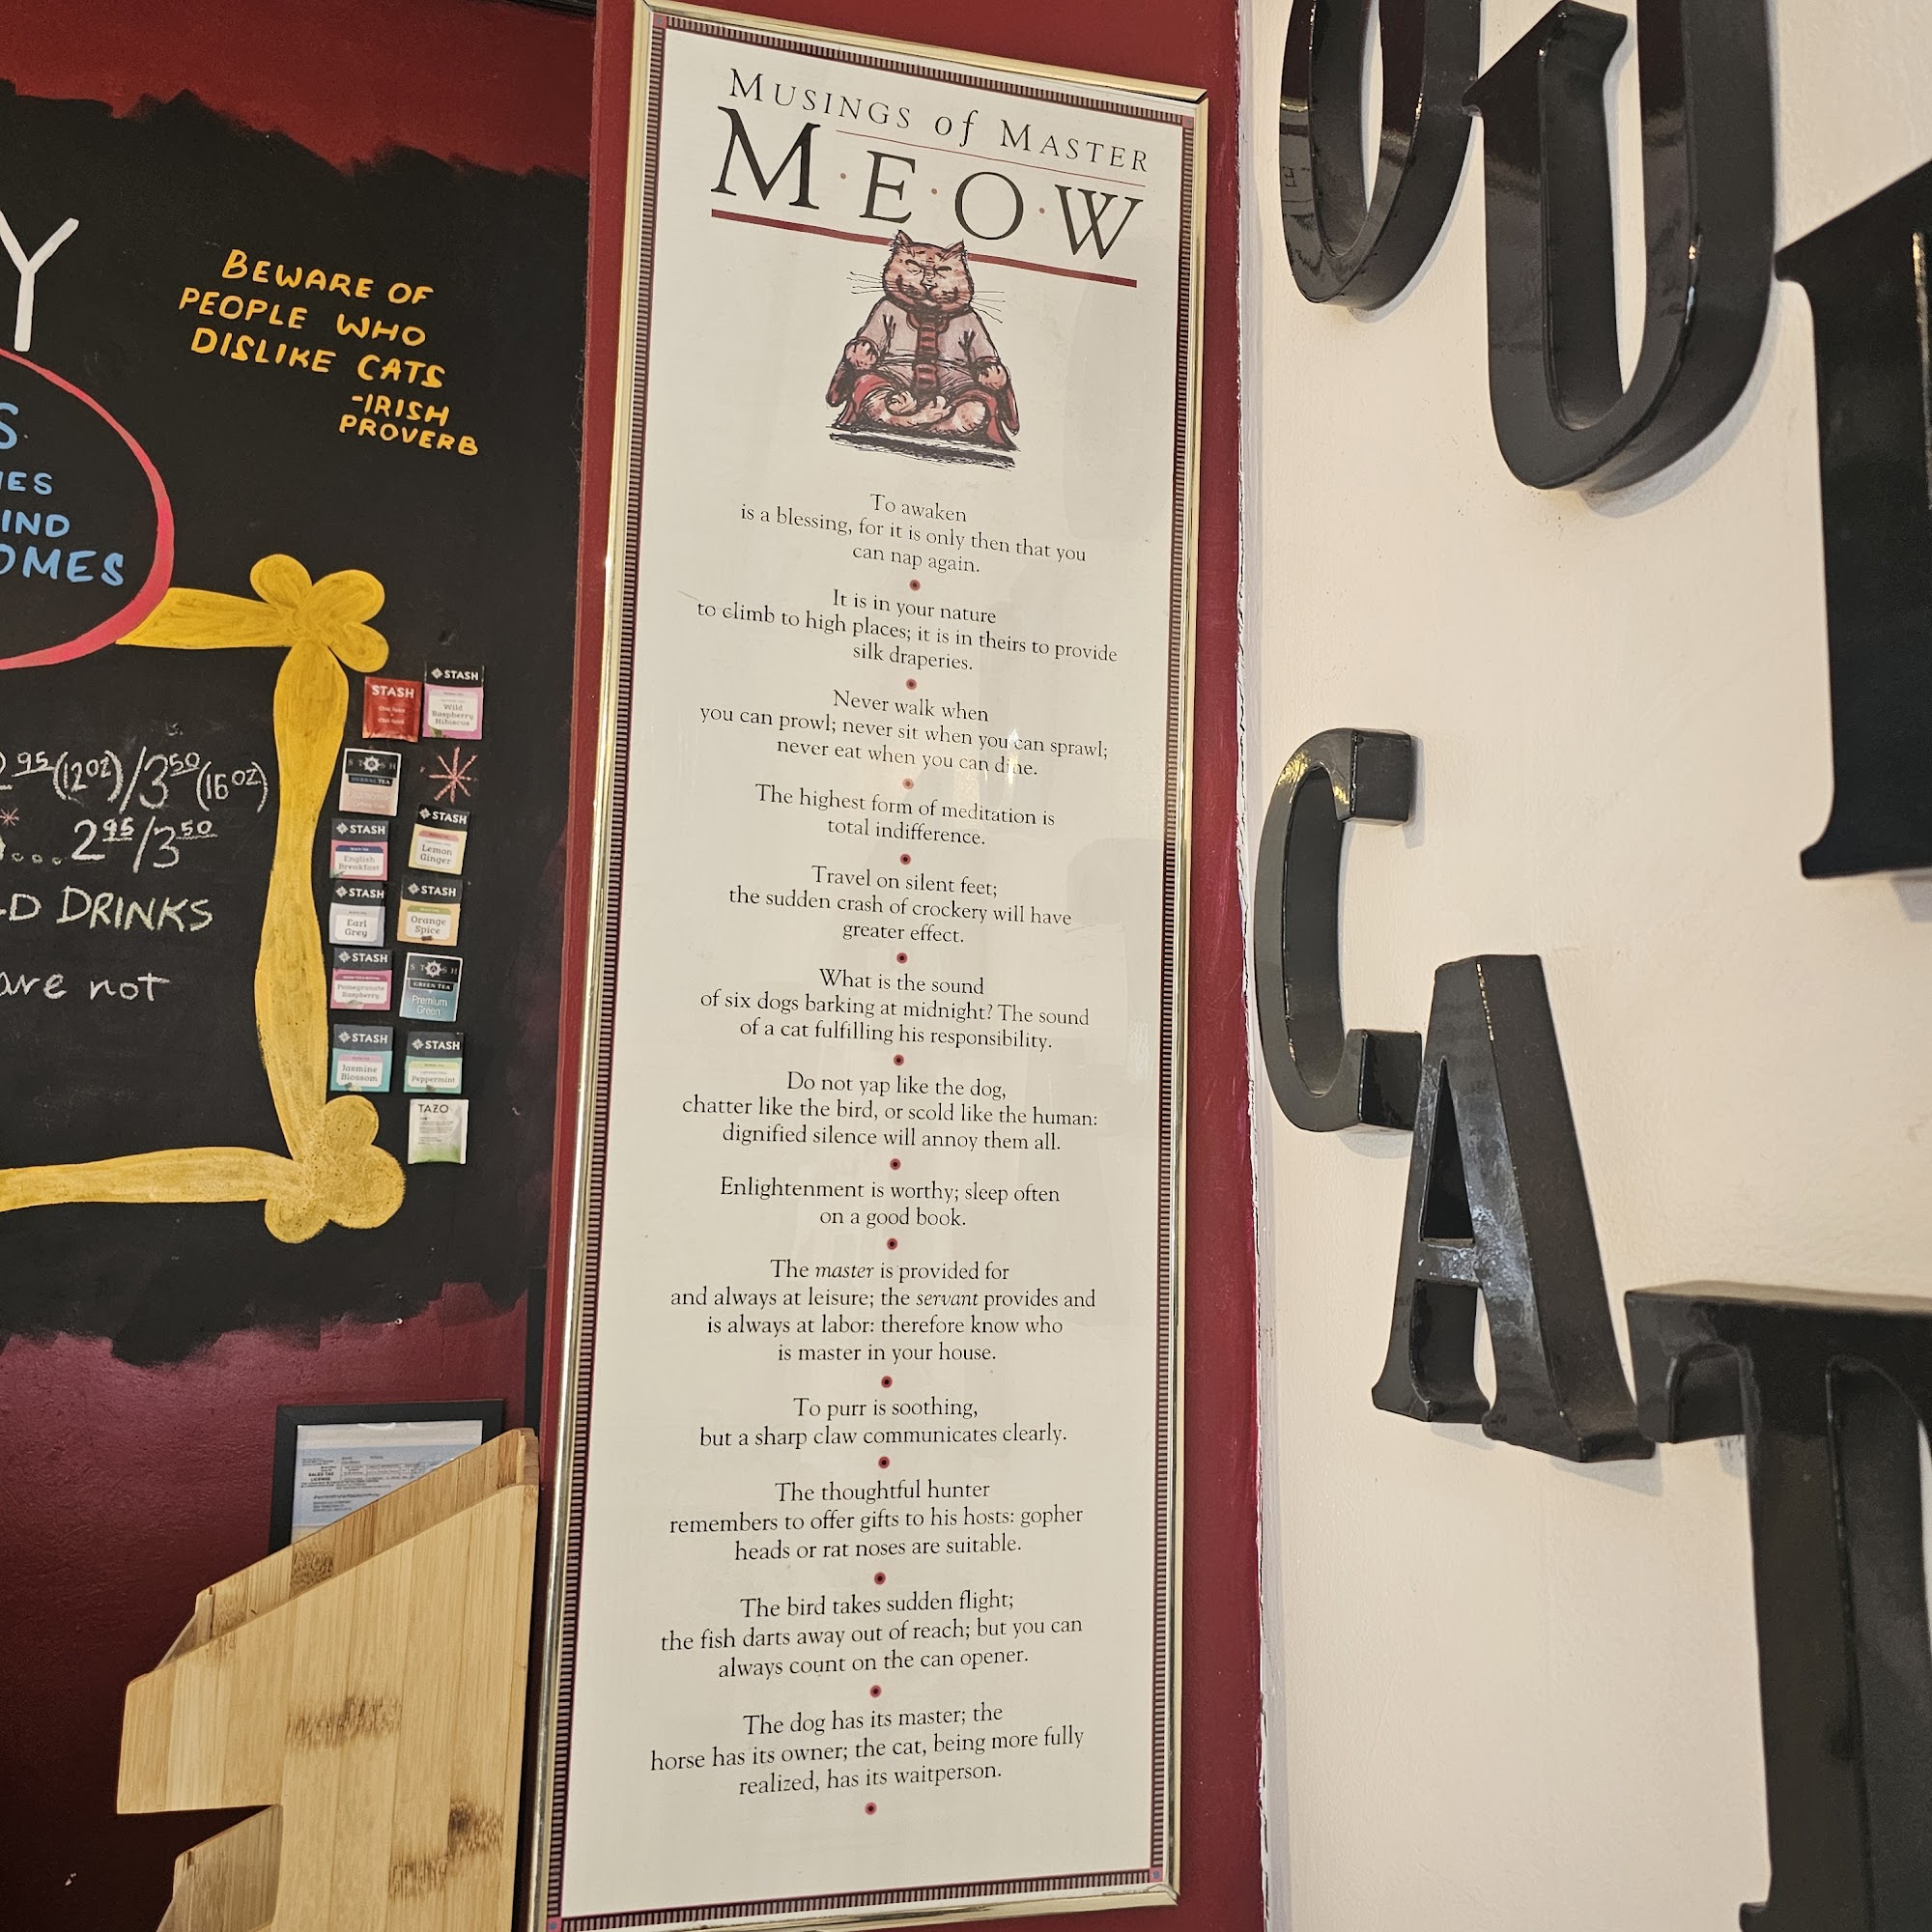 Y
BEWARE OF
PEOPLE WHO
DISLIKE CATS
-IRISH
PROVERB
S
IES
IND
OMES
95(12OZ)/350(16OZ)
...295/350
D DRINKS
are not
STASH
STASH
Wild
Raspberry
Hibiscus
STASH
STASH
English
Breakfast
STASH
Lemon
Ginger
STASH
Earl
Grey
STASH
Orange
Spice
STASH
Pomegranate
Raspberry
STASH
GREEN TEA
Premium
Green
STASH
Jasmine
Blossom
STASH
Peppermint
TAZO
SALES TAX
LICENSE
MUSINGS of MASTER
M·E·O·W
To awaken
is a blessing, for it is only then that you
can nap again.
It is in your nature
to climb to high places; it is in theirs to provide
silk draperies.
Never walk when
you can prowl; never sit when you can sprawl;
never eat when you can dine.
The highest form of meditation is
total indifference.
Travel on silent feet;
the sudden crash of crockery will have
greater effect.
What is the sound
of six dogs barking at midnight? The sound
of a cat fulfilling his responsibility.
Do not yap like the dog,
chatter like the bird, or scold like the human:
dignified silence will annoy them all.
Enlightenment is worthy; sleep often
on a good book.
The master is provided for
and always at leisure; the servant provides and
is always at labor: therefore know who
is master in your house.
To purr is soothing,
but a sharp claw communicates clearly.
The thoughtful hunter
remembers to offer gifts to his hosts: gopher
heads or rat noses are suitable.
The bird takes sudden flight;
the fish darts away out of reach; but you can
always count on the can opener.
The dog has its master; the
horse has its owner; the cat, being more fully
realized, has its waitperson.
OU
CAT